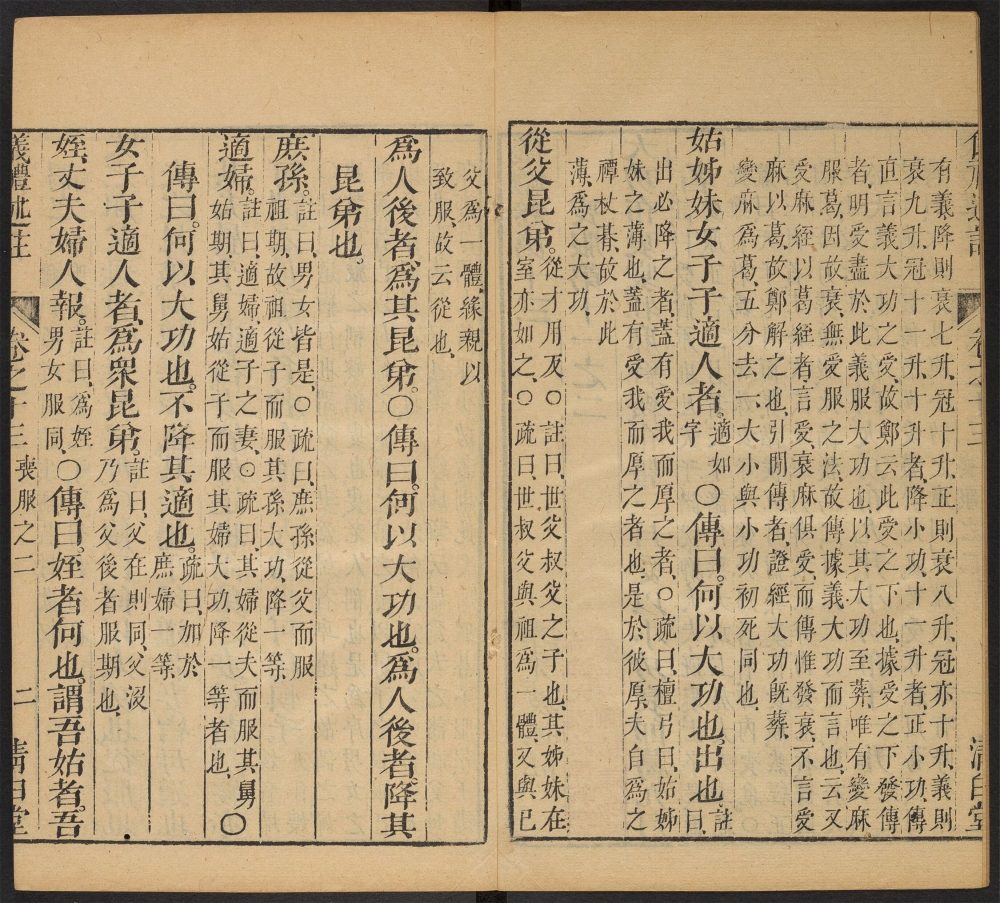 有義降則衰七升、冠十升、正則衰八升、冠亦十升、義則
衰九升、冠十一升、十升者、降小功、十一升者、正小功、傳
直言義大功之受、故鄭云此受之下也、據受之下發傳
者、明受盡於此義服大功也、以其大功至葬、唯有變麻
服葛、因故衰、無受服之法、故傳據義大功而言也、云又
受麻絰以葛絰者、言受衰麻俱受、而傳惟發衰、不言受
麻以葛、故鄭解之也、引閒傳者、證經大功旣葬、
變麻爲葛、五分去一、大小與小功初死同也、
姑姊妹女子子適人者。適如字○傳曰。何以大功也。出也。註曰、
出必降之者、蓋有受我而厚之者、○疏曰、檀弓曰、姑姊
妹之薄也、蓋有受我而厚之者也、是於彼厚、夫自爲之
禫杖朞、故於此
薄、爲之大功、
從父昆弟。從才用反、○註曰、世父叔父之子也、其姊妹在
室亦如之、○疏曰、世叔父與祖爲一體、又與己
父爲一體、緣親以
致服、故云從也、
爲人後者、爲其昆弟。○傳曰。何以大功也。爲人後者、降其
昆弟也。
庶孫。註曰、男女皆是、○疏曰、庶孫從父而服
祖期、故祖從子而服其孫大功、降一等、
適婦。註曰、適婦適子之妻、○疏曰、其婦從夫而服其舅
姑期、其舅姑從子而服其婦大功、降一等者也、○
傳曰。何以大功也。不降其適也。疏曰、加於
庶婦一等、
女子子適人者、爲衆昆弟。註曰、父在則同、父沒
乃爲父後者服期也、
姪、丈夫婦人報。註曰、爲姪
男女服同、○傳曰。姪者何也。謂吾姑者。吾
卷之十三 喪服之二 二